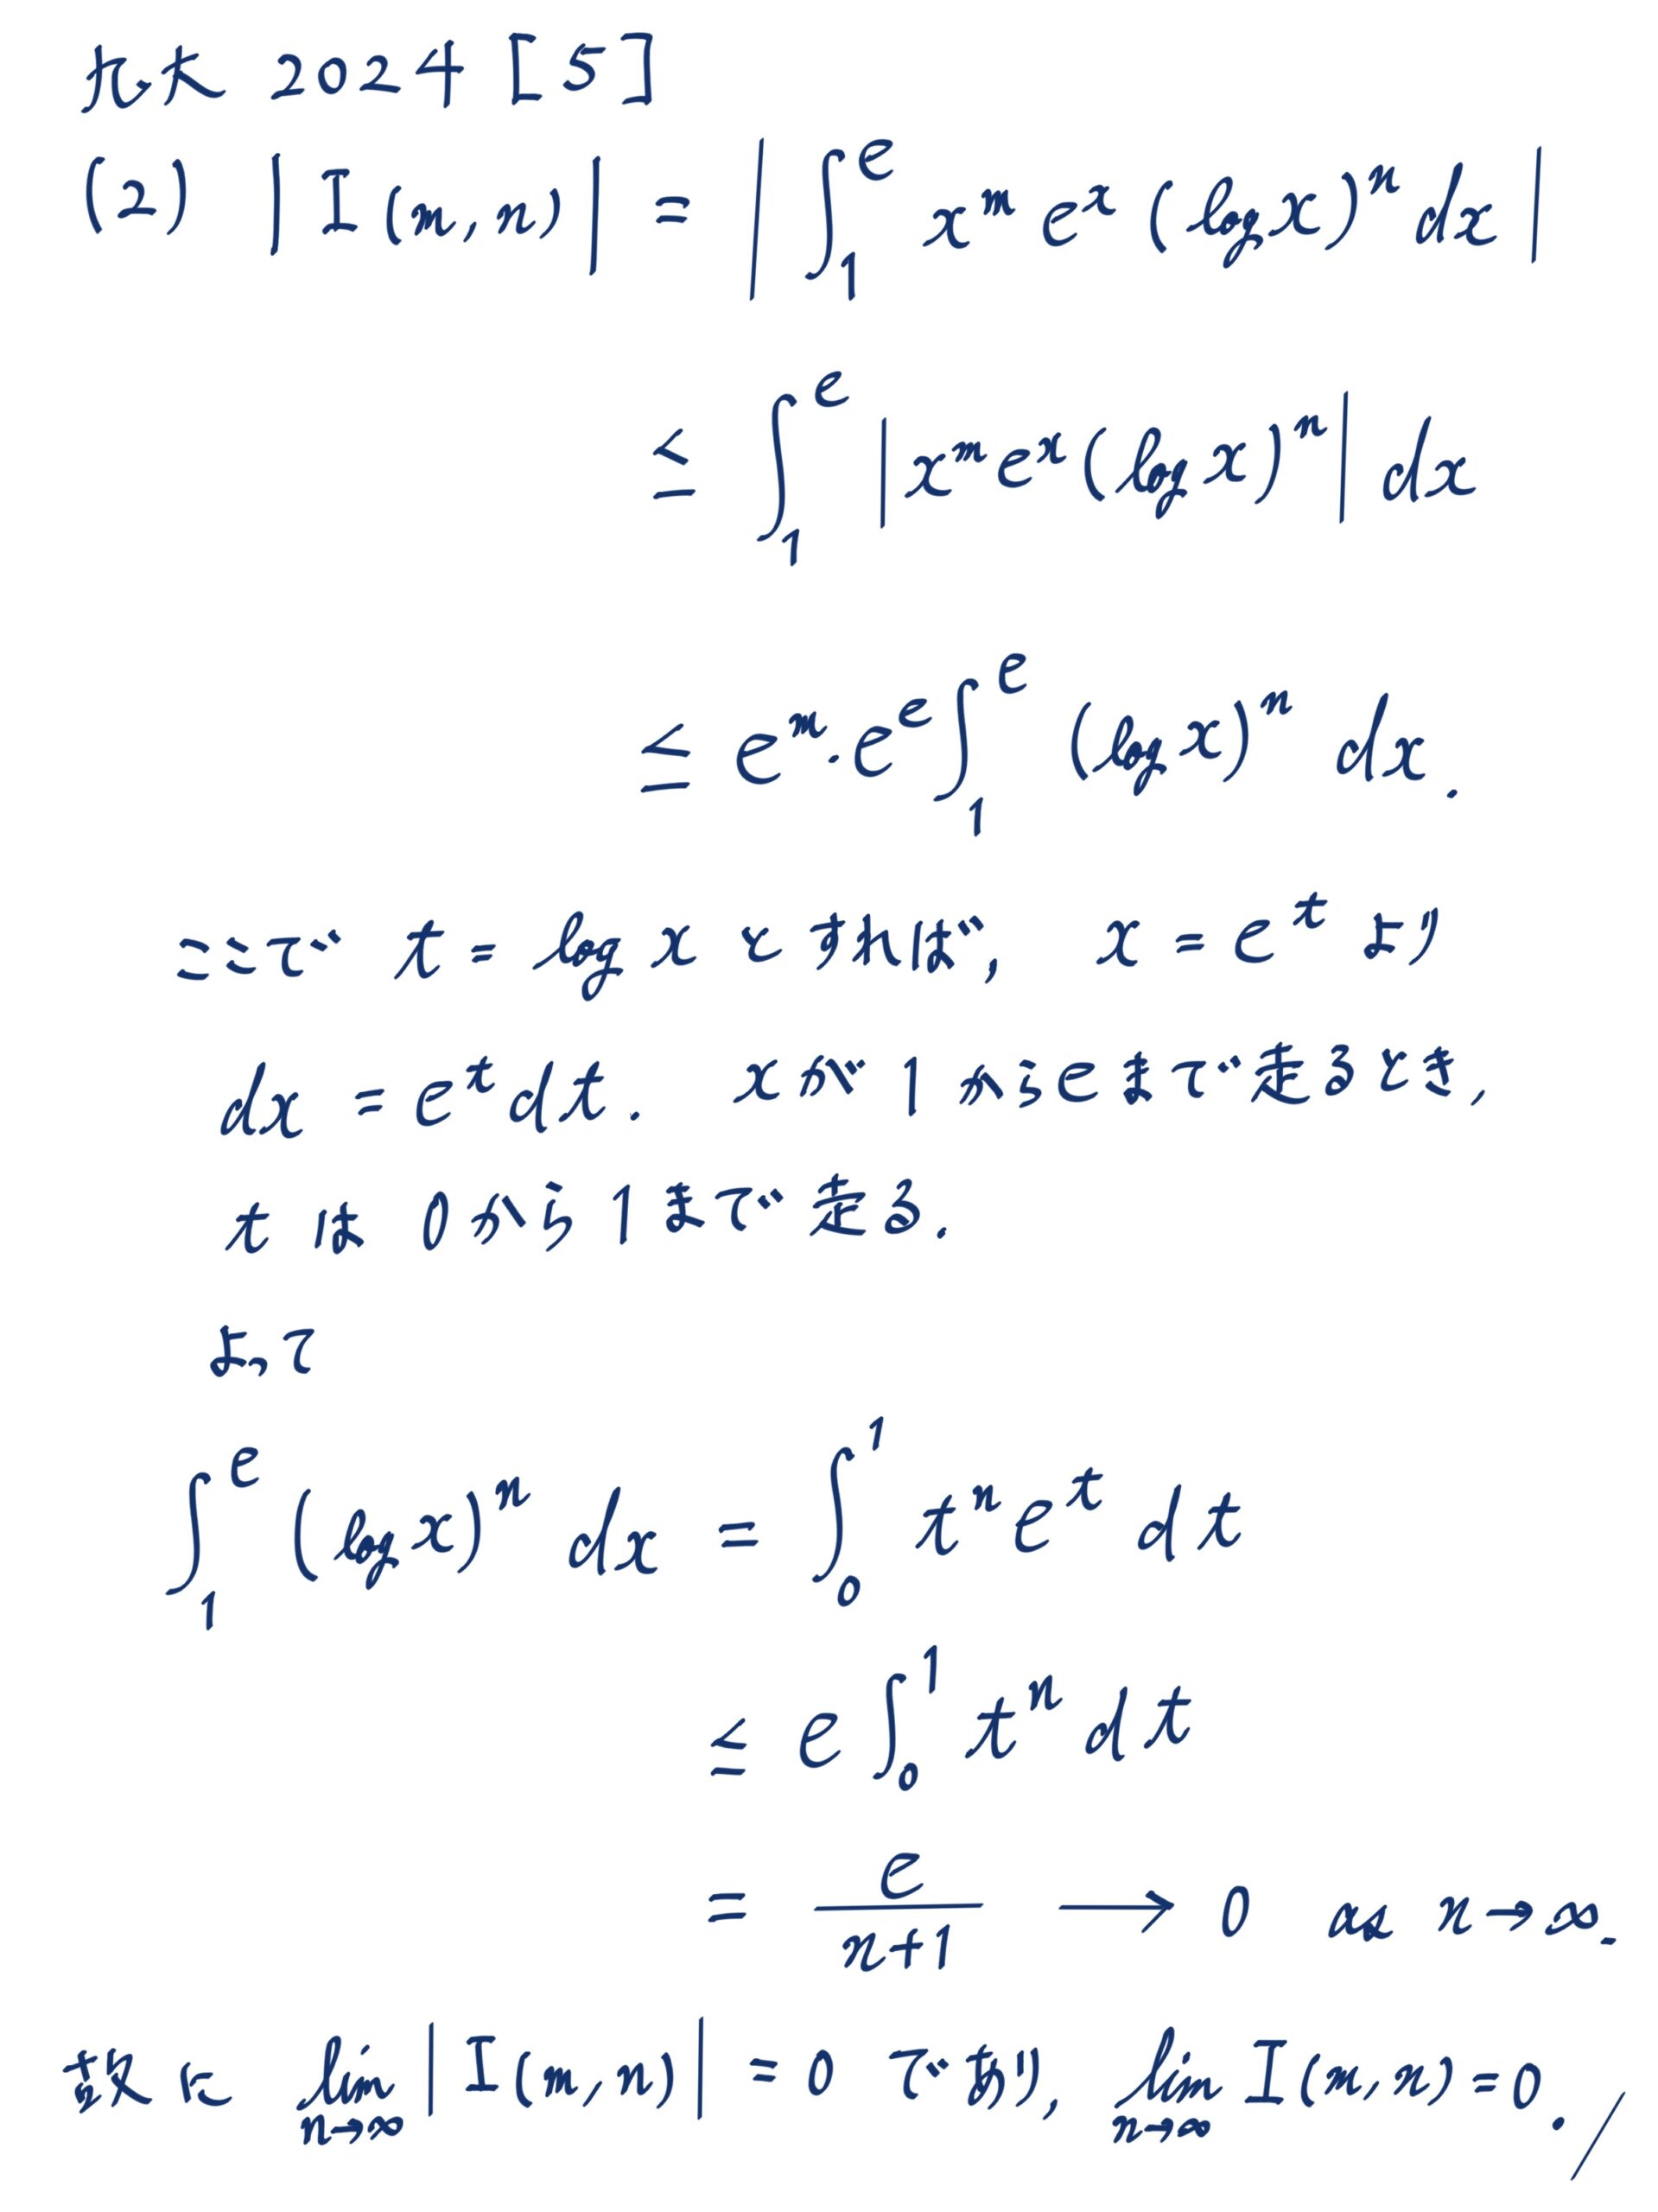 九大 2024 [5]
(2) |I(m,n)| = |∫₁ᵉ xᵐ eˣ (log x)ⁿ dx|
≦ ∫₁ᵉ |xᵐ eˣ (log x)ⁿ| dx
≦ eᵐ・eᵉ ∫₁ᵉ (log x)ⁿ dx.
ここで t = log x とすれば, x = eᵗ より
dx = eᵗ dt. xが1からeまで走るとき,
tは0から1まで走る.
よって
∫₁ᵉ (log x)ⁿ dx = ∫₀¹ tⁿ eᵗ dt
≦ e ∫₀¹ tⁿ dt
= e/(n+1) ⟶ 0 as n→∞.
故に lim_{n→∞} |I(m,n)| = 0 であり, lim_{n→∞} I(m,n) = 0. /